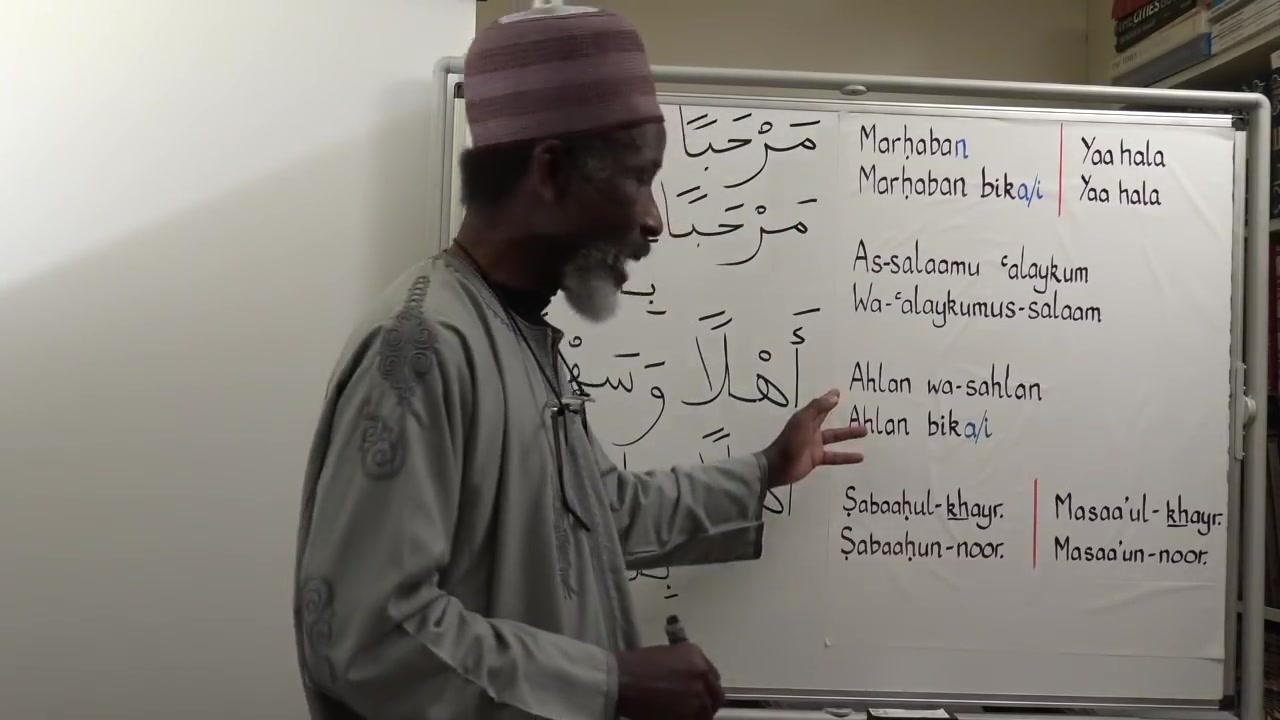 مَرْحَبًا
مَرْحَبًا
أَهْلًا وَسَهْ
Marḥaban
Marḥaban bika/i
Yaa hala
Yaa hala
As-salaamu ʿalaykum
Wa-ʿalaykumus-salaam
Ahlan wa-sahlan
Ahlan bika/i
Ṣabaaḥul-khayr.
Ṣabaaḥun-noor.
Masaa'ul-khayr.
Masaa'un-noor.
THE CITIES